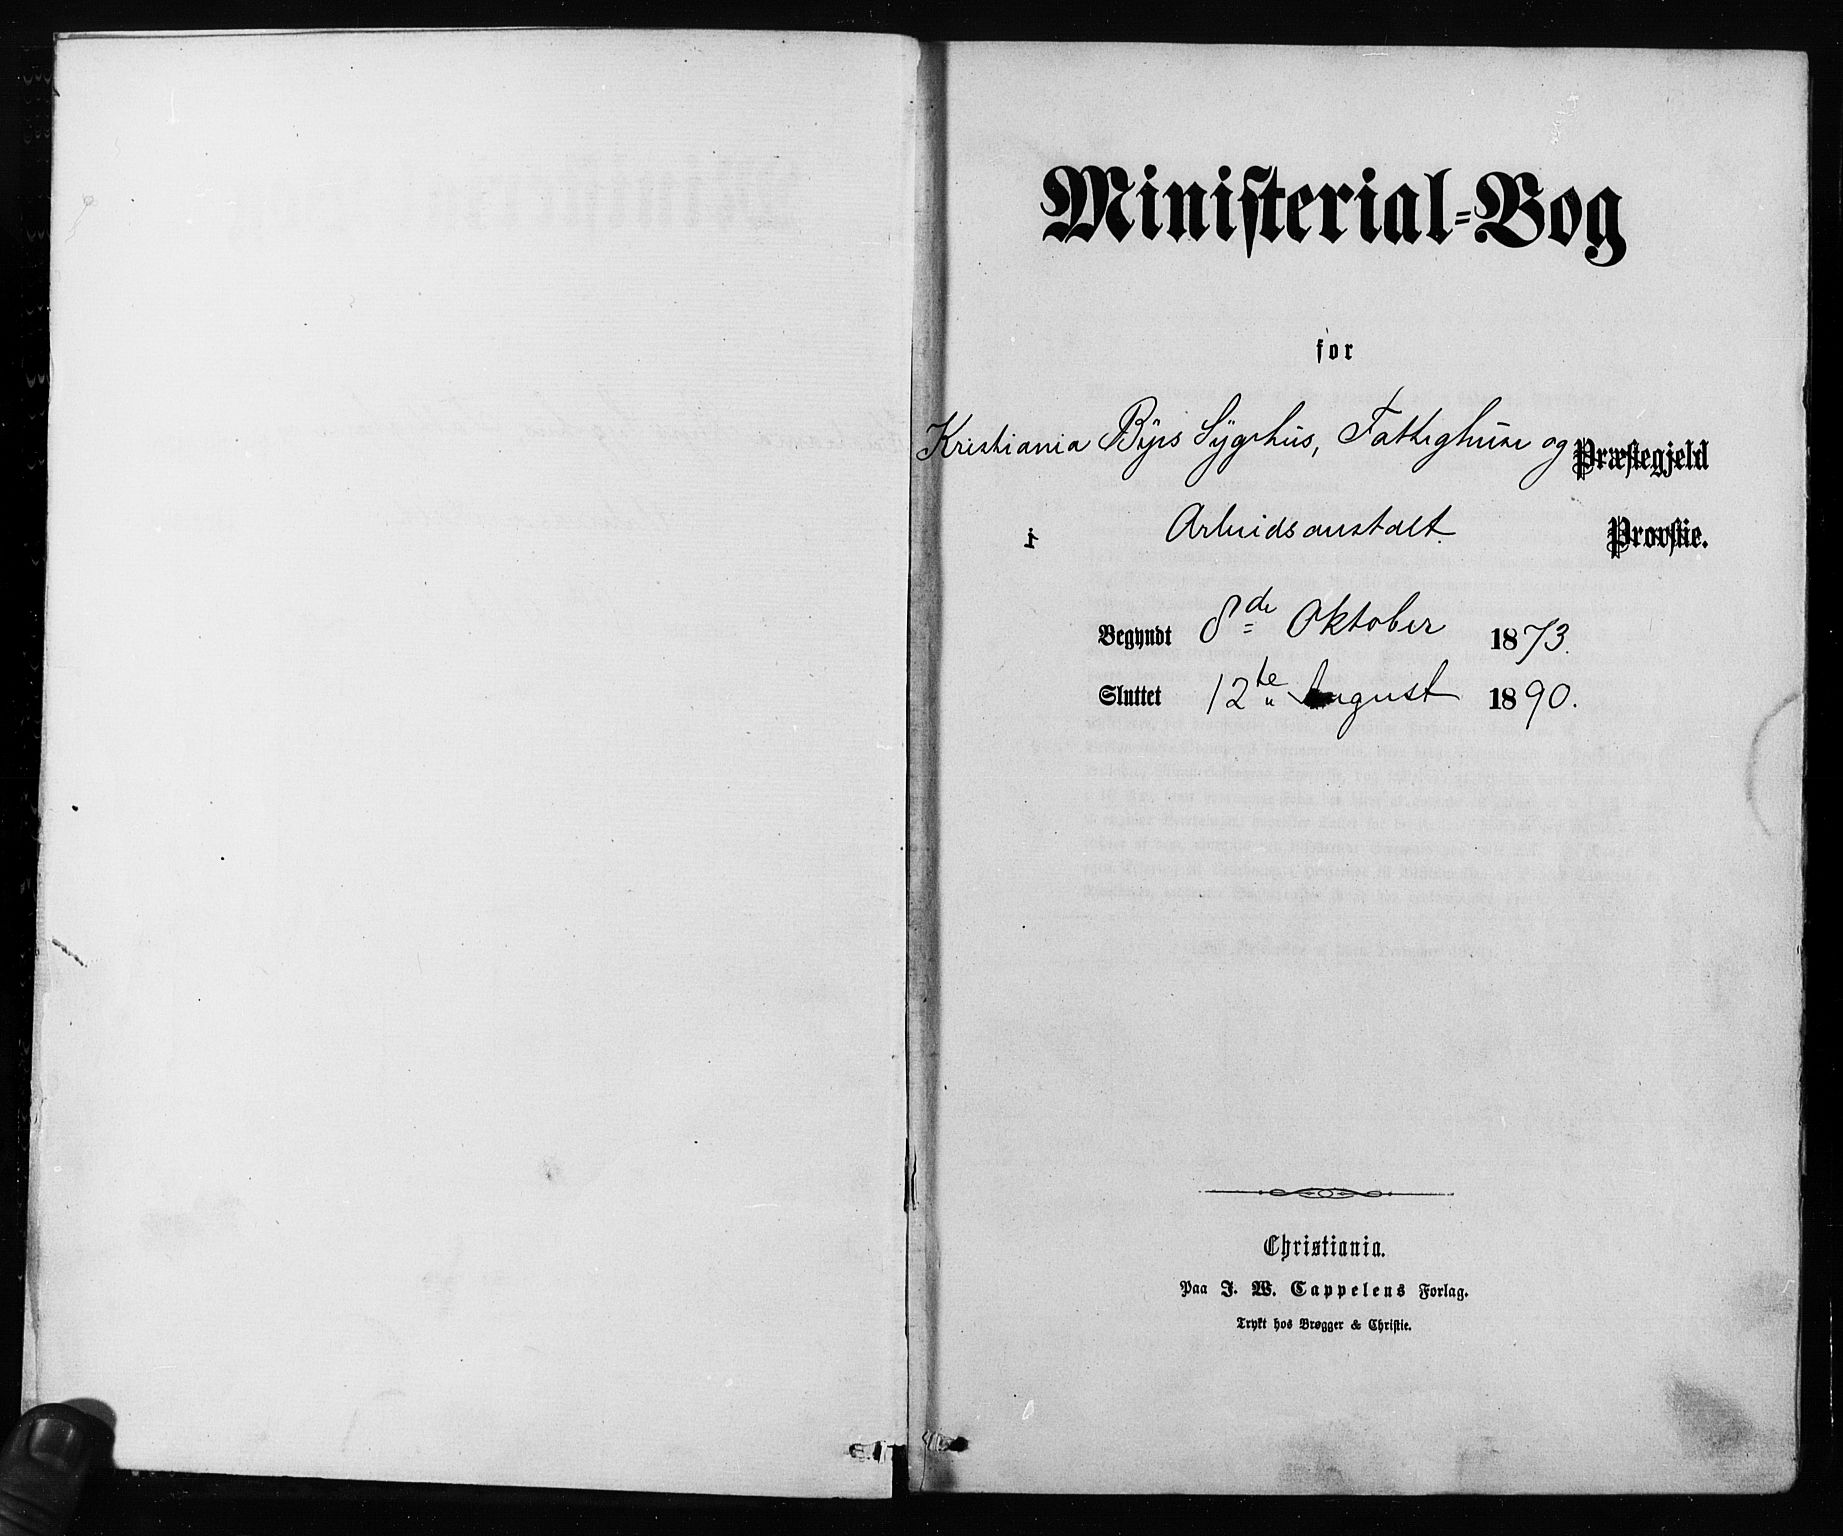 Ministerial-Bog
for
Kristiania Byes Sygehus, Fattighuse og Præstegjeld
i Arbeidsanstalt. Provstie.
Begyndt 8de Oktober 1873.
Sluttet 12te August 1890.
Christiania.
Paa J. W. Cappelens Forlag.
Trykt hos Brøgger & Christie.